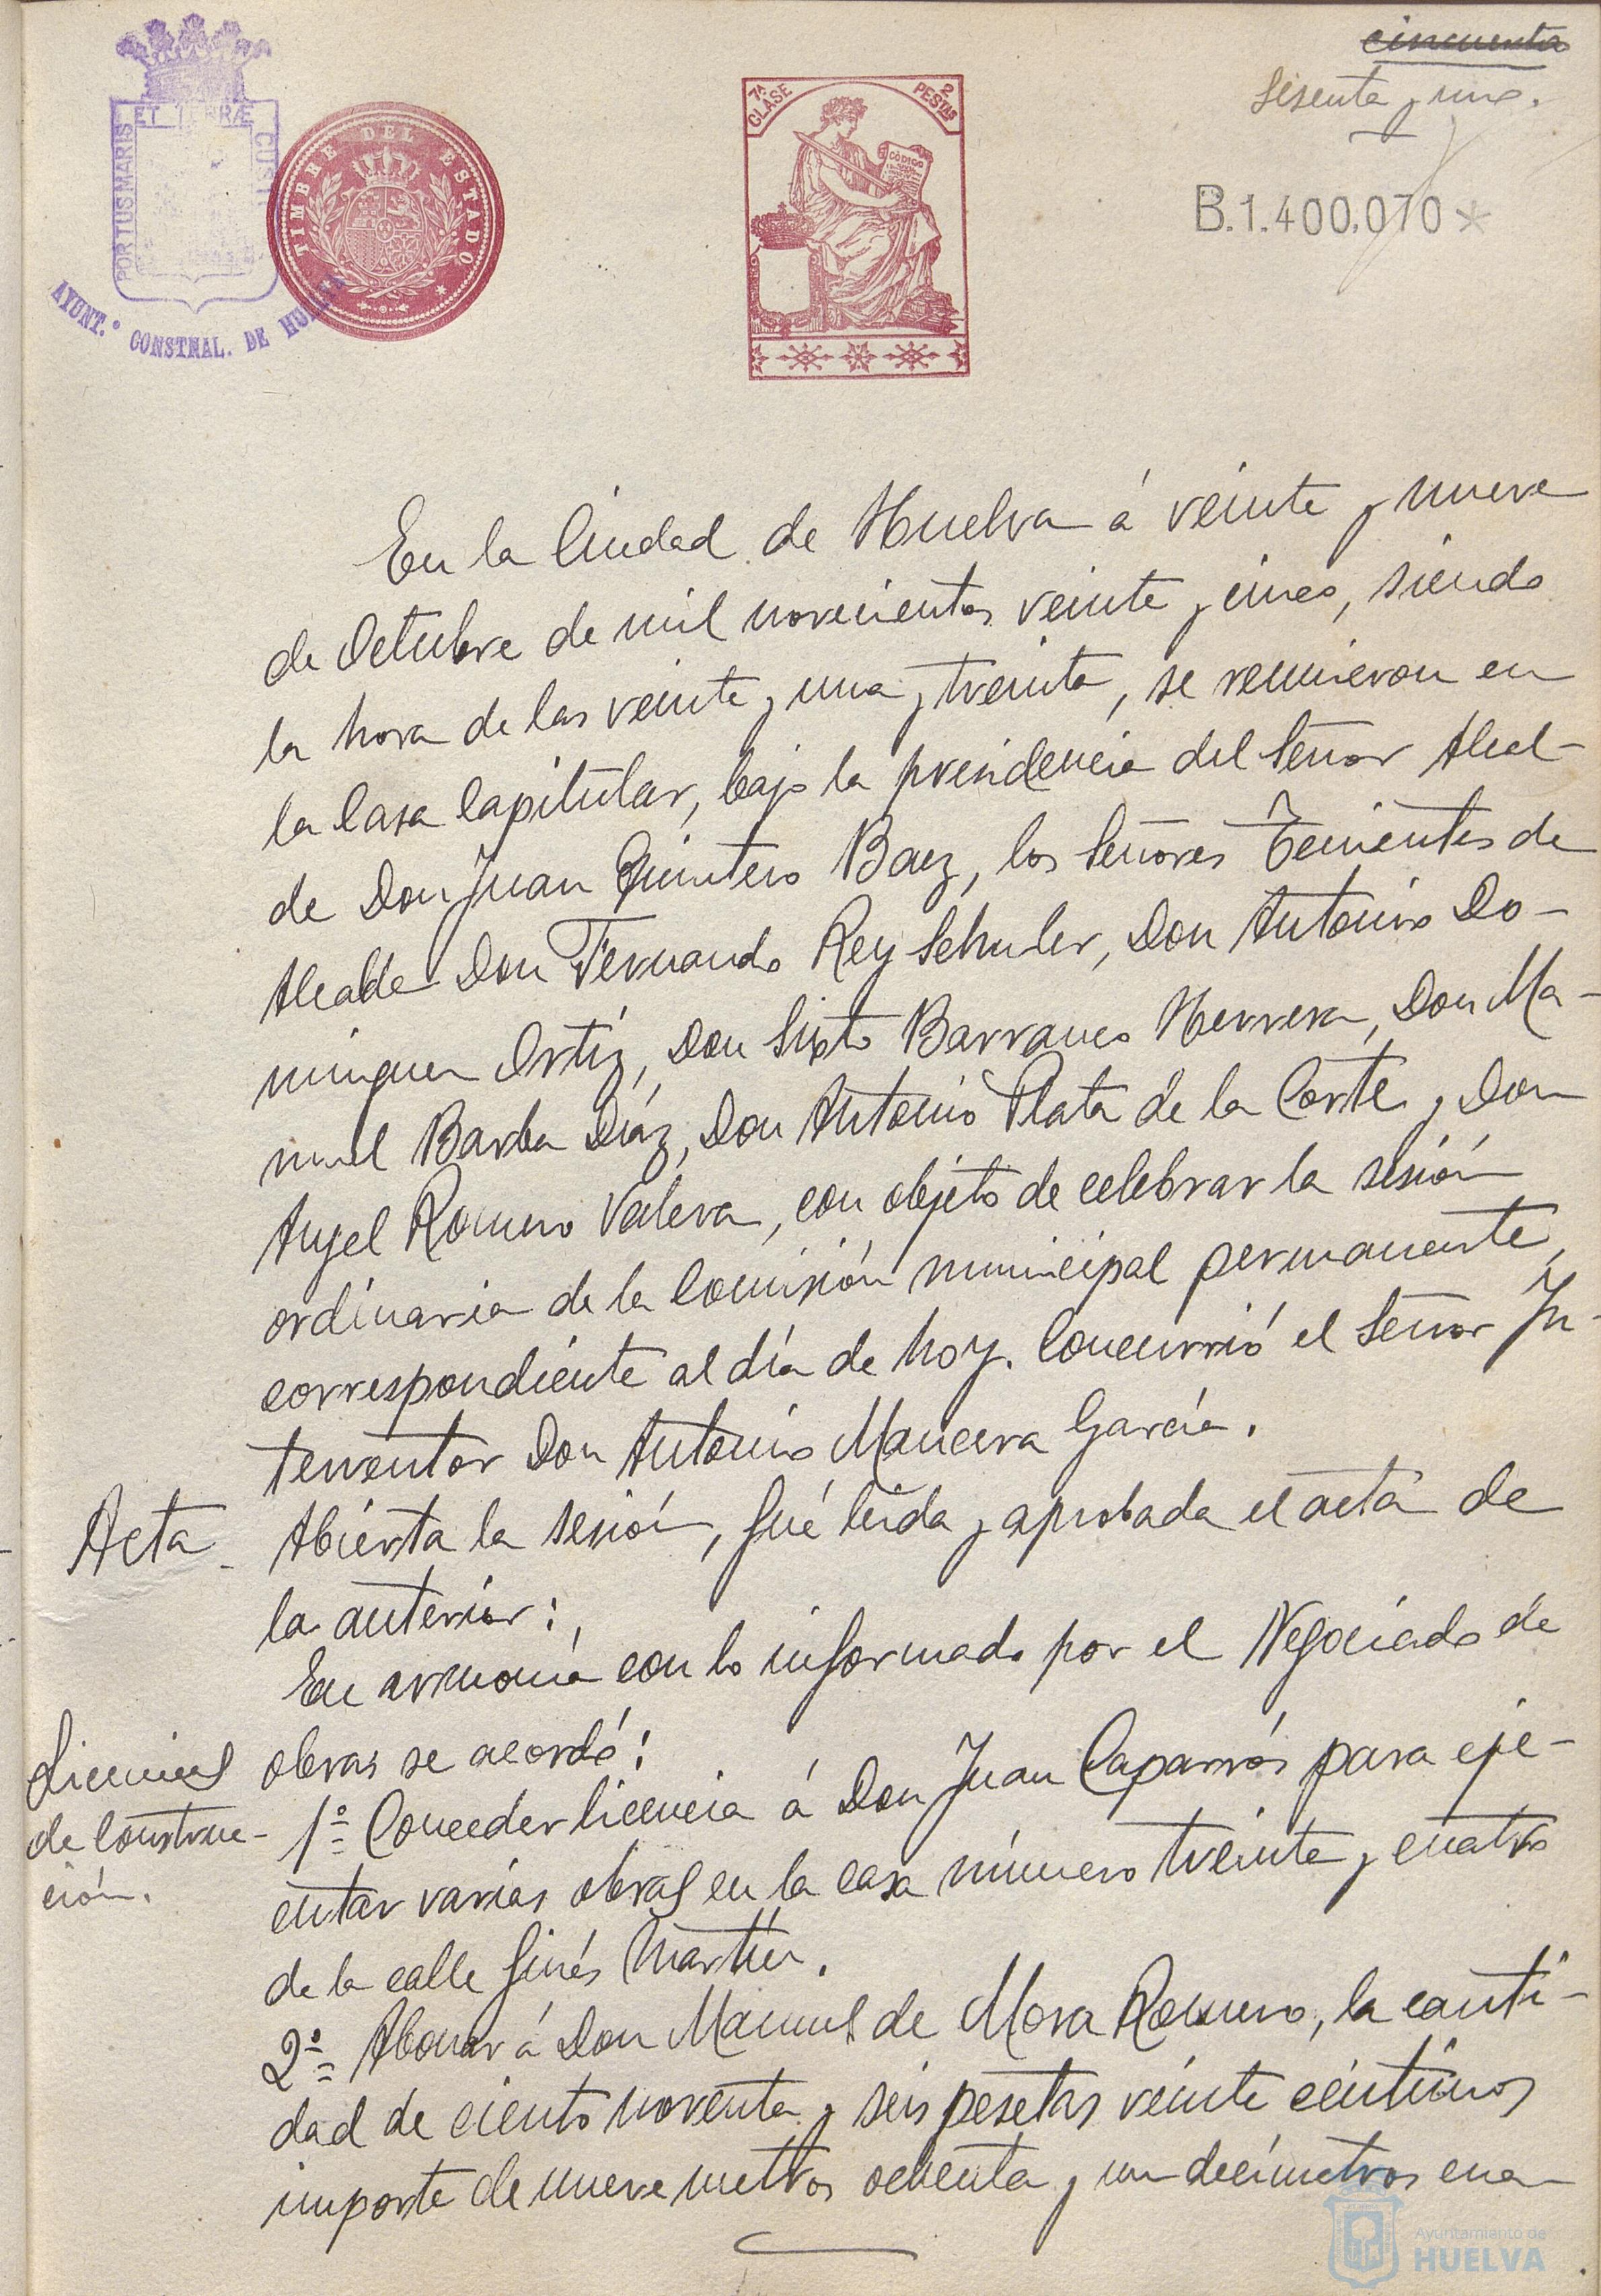 cincuenta
Sesenta y uno.
ET TERRÆ
PORTUS MARIS
CUST
AYUNT.º CONSTNAL. DE HUELVA
TIMBRE DEL ESTADO
7ª CLASE
2 PESTAS
CÓDIGO
B.1.400.070*
En la Ciudad de Huelva á veinte y nueve
de Octubre de mil novecientos veinte y cinco, siendo
la hora de las veinte y una y treinta, se reunieron en
la Casa Capitular, bajo la presidencia del Señor Alcal-
de Don Juan Quintero Baez, los Señores Tenientes de
Alcalde Don Fernando Rey Schuler, Don Antonio Do-
minguez Ortíz, Don Sixto Barranco Herrera, Don Ma-
nuel Barba Díaz, Don Antonio Plata de la Corte y Don
Angel Romero Valera, con objeto de celebrar la sesión
ordinaria de la Comisión municipal permanente,
correspondiente al día de hoy. Concurrió el Señor In-
terventor Don Antonio Mancera García.
Acta.
Abierta la sesión, fué leida y aprobada el acta de
la anterior:
En armonía con lo informado por el Negociado de
Licencias
de Construc-
ción.
obras se acordó:
1º= Conceder licencia á Don Juan Caparrós para eje-
cutar varias obras en la casa número treinta y cuatro
de la calle Ginés Martín.
2º= Abonar á Don Manuel de Mora Romero, la canti-
dad de ciento noventa y seis pesetas veinte céntimos
importe de nueve metros ochenta y un decímetros cua-
Ayuntamiento de
HUELVA